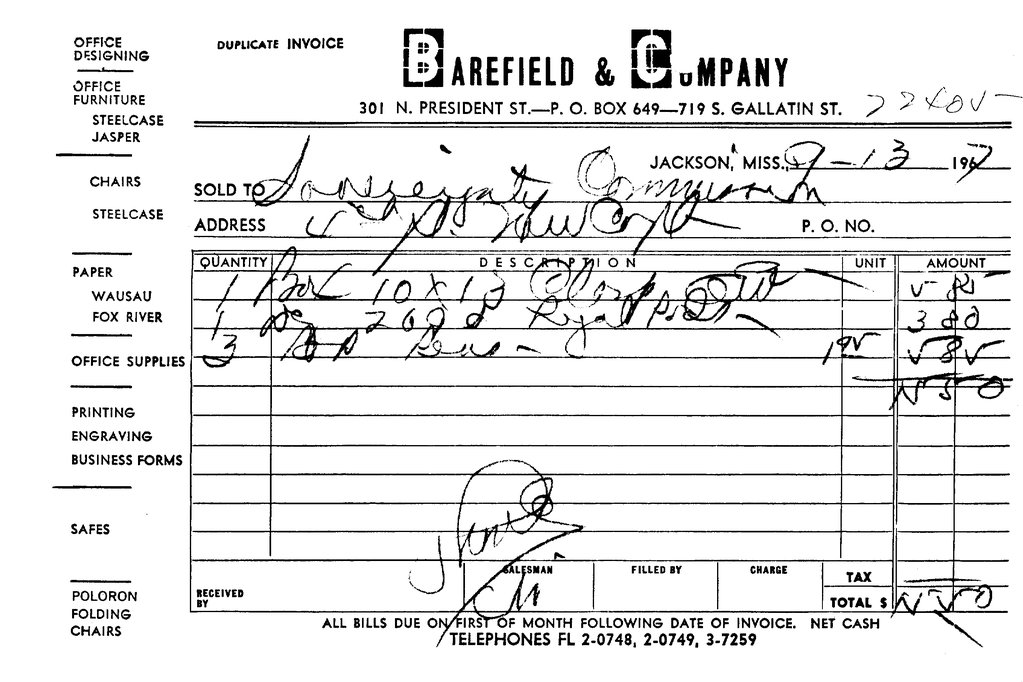 OFFICE DESIGNING
DUPLICATE INVOICE
BAREFIELD & COMPANY
301 N. PRESIDENT ST.—P. O. BOX 649—719 S. GALLATIN ST.
OFFICE FURNITURE
STEELCASE
JASPER
CHAIRS
STEELCASE
PAPER
WAUSAU
FOX RIVER
OFFICE SUPPLIES
PRINTING
ENGRAVING
BUSINESS FORMS
SAFES
POLORON FOLDING CHAIRS
JACKSON, MISS. 9-13 1967
SOLD TO Sovereignty Commission
ADDRESS New Cap
P. O. NO.
QUANTITY DESCRIPTION UNIT AMOUNT
1 Box 10 x 13 Clasp 5 85
1 Royal 3 80
3 Pens - 195 5 85
15 50
SALESMAN FILLED BY CHARGE TAX
RECEIVED BY
TOTAL $ 15 50
ALL BILLS DUE ON FIRST OF MONTH FOLLOWING DATE OF INVOICE. NET CASH
TELEPHONES FL 2-0748, 2-0749, 3-7259